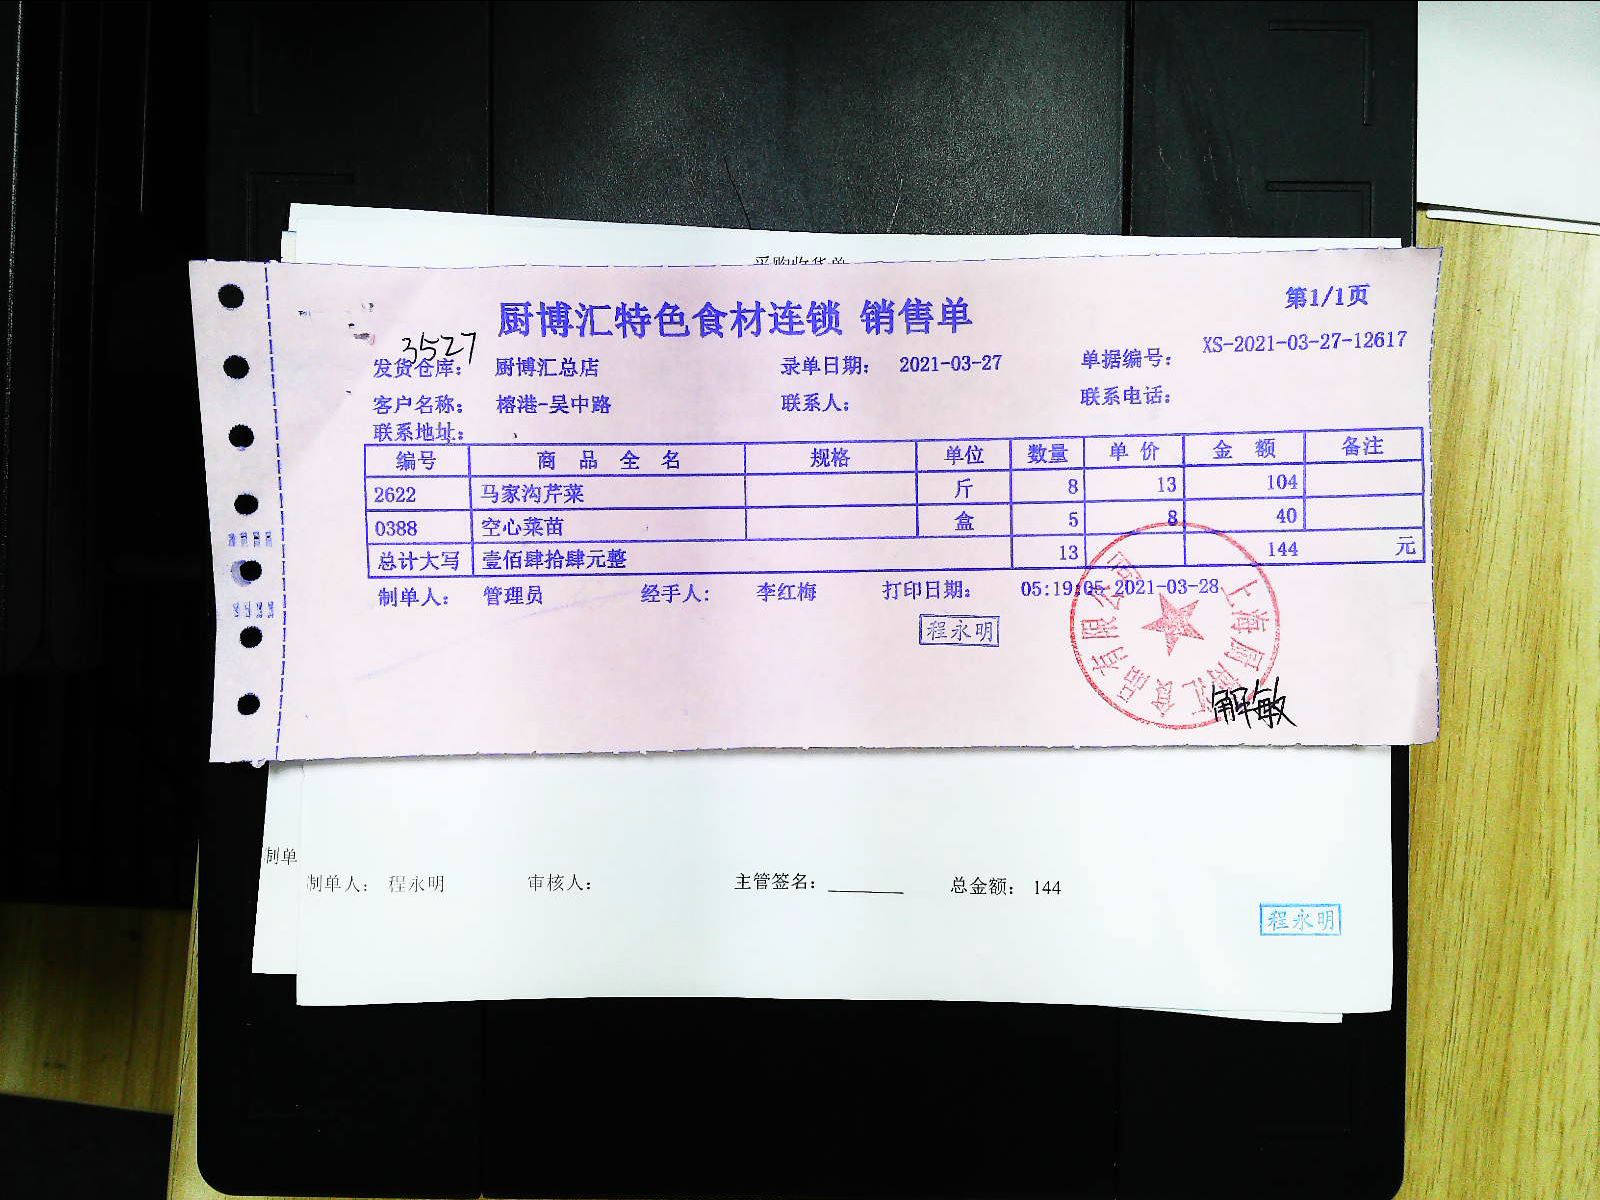 采购收货单
厨博汇特色食材连锁 销售单
第1/1页
3527
发货仓库： 厨博汇总店 录单日期： 2021-03-27 单据编号： XS-2021-03-27-12617
客户名称： 榕港-吴中路 联系人： 联系电话：
联系地址：
编号 商品全名 规格 单位 数量 单价 金额 备注
2622 马家沟芹菜 斤 8 13 104
0388 空心菜苗 盒 5 8 40
总计大写 壹佰肆拾肆元整 13 144 元
制单人： 管理员 经手人： 李红梅 打印日期： 05:19:05 2021-03-28
程永明
上海厨博汇食品有限公司
解敏
制单
制单人： 程永明 审核人： 主管签名：________ 总金额： 144
程永明